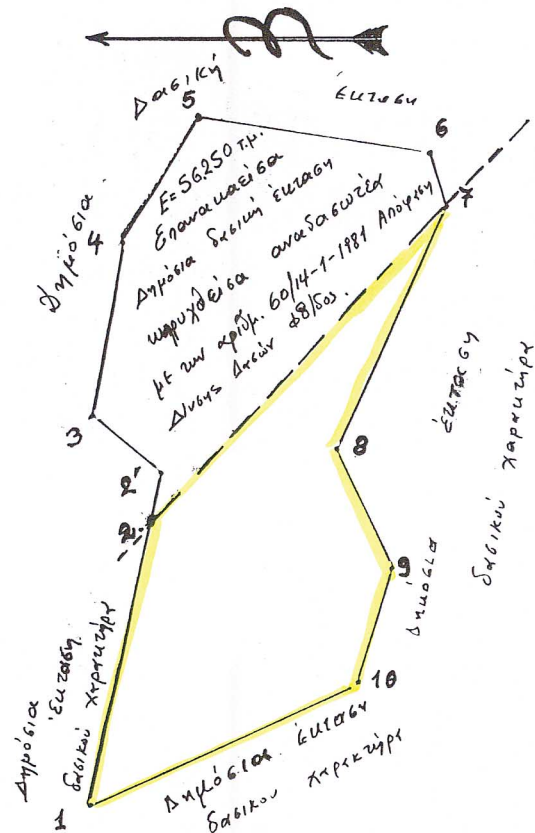 Δασική
έκταση
5
6
7
Δημόσια
4
Ε=56250 τ.μ.
Επανακαείσα
Δημόσια δασική έκταση
κηρυχθείσα αναδασωτέα
με την αριθμ. 60/14-1-1981 Απόφαση
Δ/νσης Δασών Φθ/δος.
3
2'
2
8
9
10
1
Δημόσια
έκταση
δασικού χαρακτήρα
Δημόσια
έκταση
δασικού χαρακτήρα
Δημόσια έκταση
δασικού χαρακτήρα